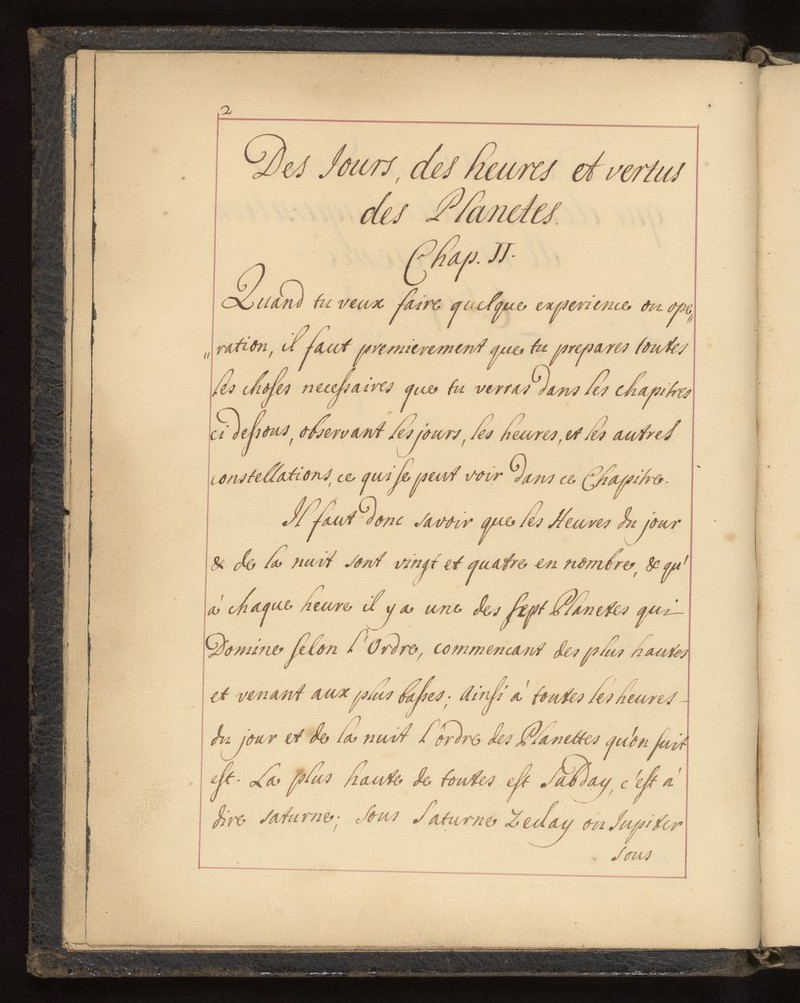 2
Des Jours, des heures et vertus
des Planetes.
Chap. II.
Quand tu veux faire quelque experience ou ope„
„ration, il faut premierement que tu prepares toutes
les choses necessaires que tu verras dans les chapitres
ci dessous, observant les jours, les heures, et les autres
constellations, ce qui se peut voir dans ce Chapitre.
Il faut donc savoir que les Heures du jour
& de la nuit sont vingt et quatre en nombre, & qu'
à chaque heure il y a une des sept Planetes qui
Domine selon l'Ordre, commencant des plus hautes
et venant aux plus basses; Ainsi à toutes les heures
du jour et de la nuit l'ordre des Planettes qu'on suit
est. La plus haute de toutes est Sabday, c'est à
dire saturne; sous Saturne Zeday ou Jupiter
sous